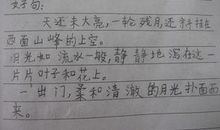 好句:
天还未大亮，一轮残月还斜挂在
西面山峰的上空。
月光如流水一般，静静地泻在这一
片片叶子和花上。
一出门，柔和清澈的月光扑面而
来。